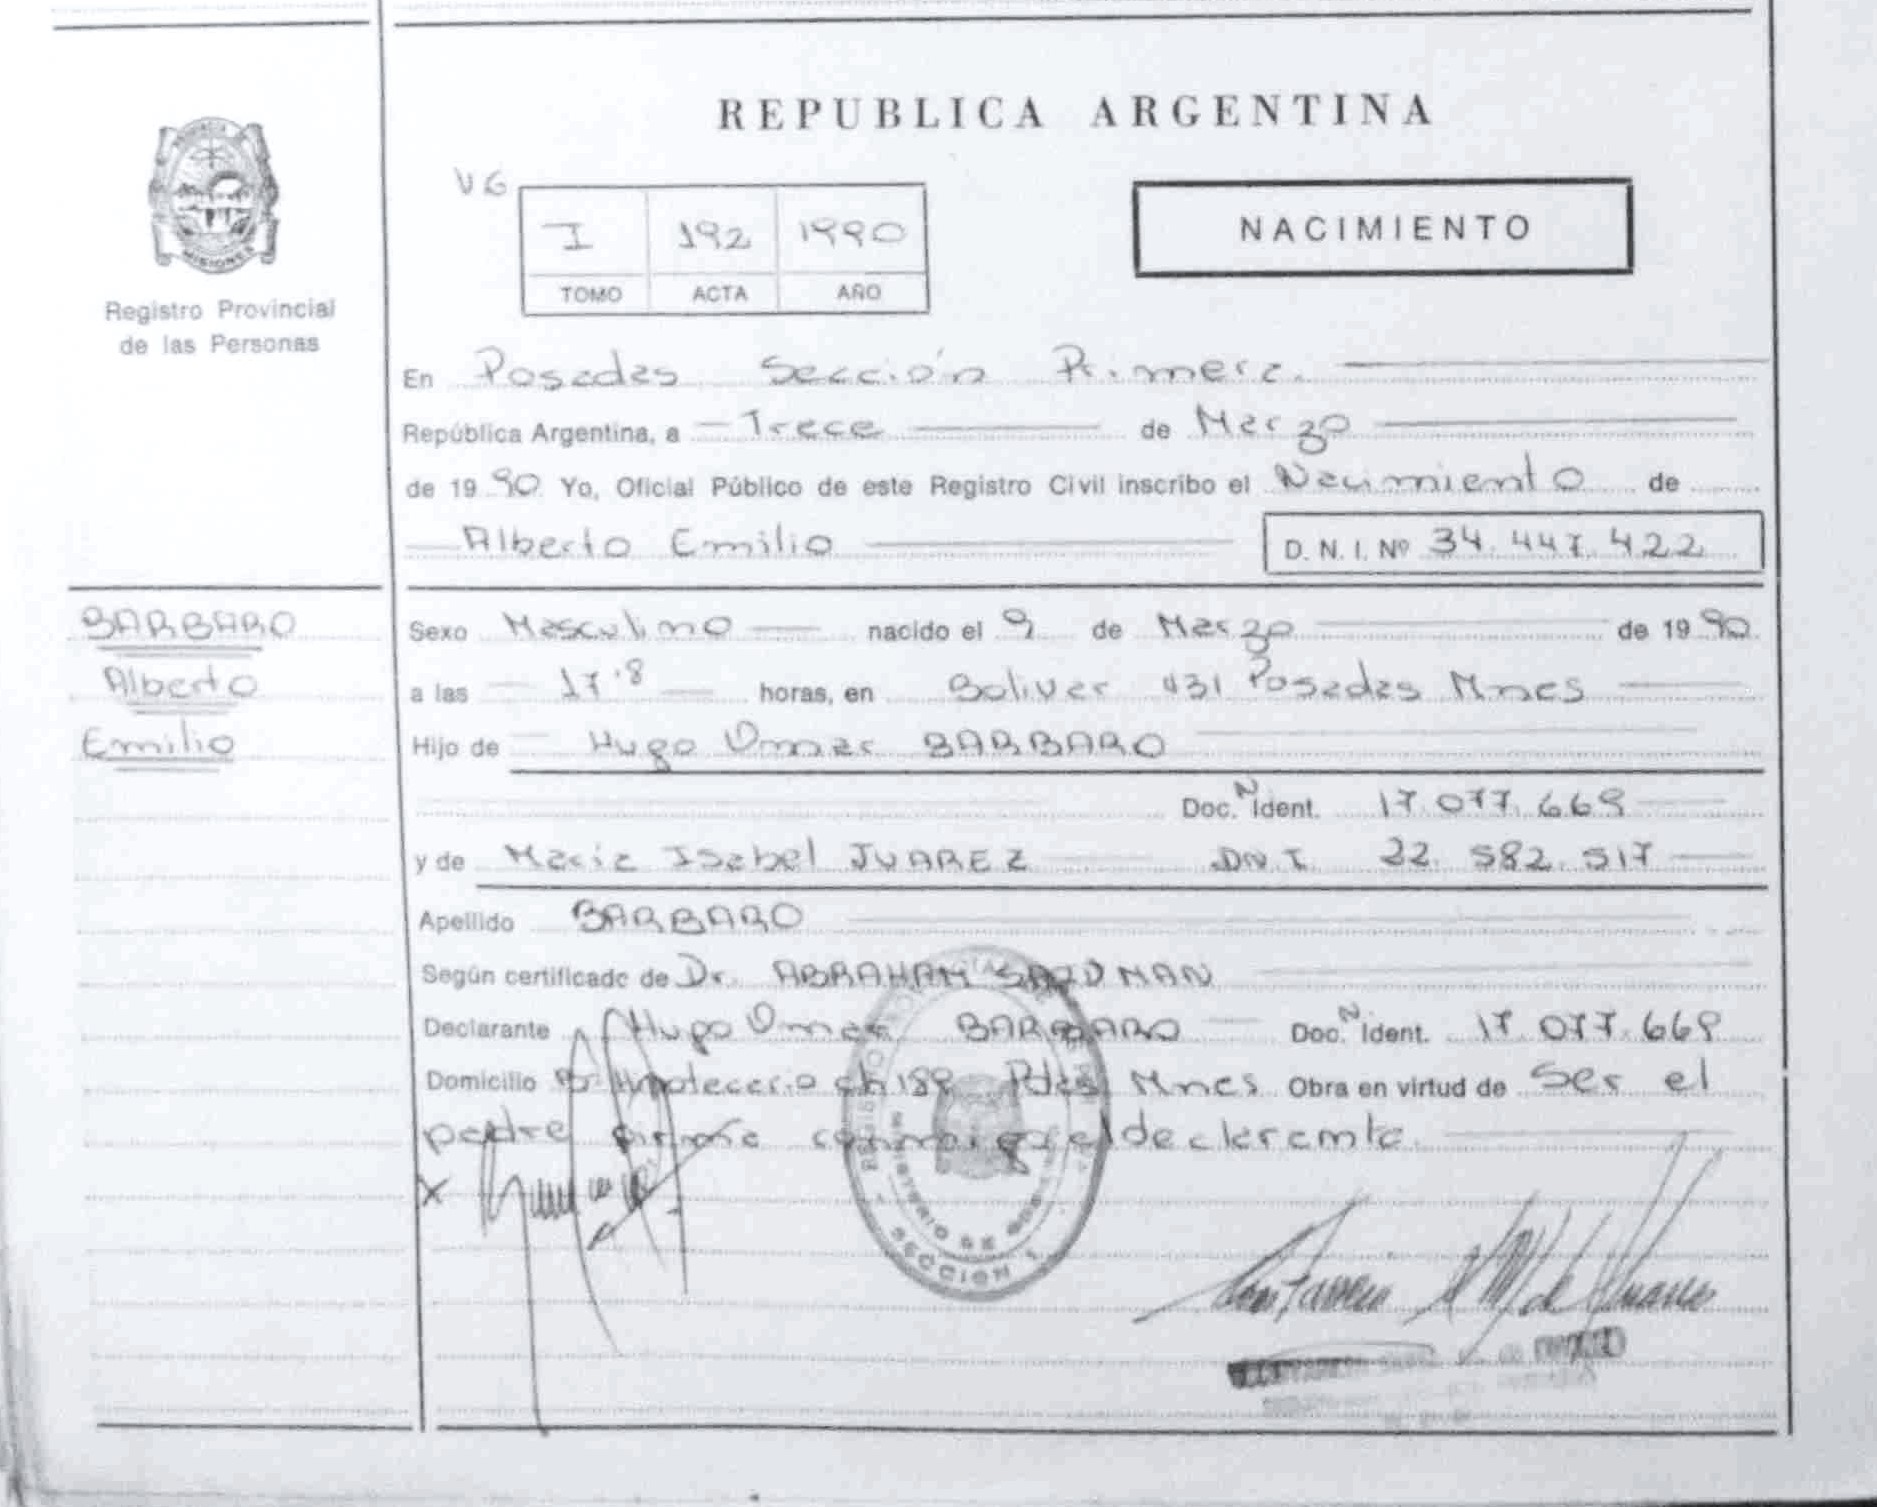 REPUBLICA ARGENTINA
MISIONES
Registro Provincial
de las Personas
VG
I 192 1990
TOMO ACTA AÑO
NACIMIENTO
En Posadas Sección Primera
República Argentina, a Trece de Marzo
de 1990 Yo, Oficial Público de este Registro Civil inscribo el Nacimiento de
Alberto Emilio D. N. I. Nº 34.447.422
BARBARO
Alberto
Emilio
Sexo Masculino nacido el 9 de Marzo de 1990
a las 17'8 horas, en Bolivar 431 Posadas Mnes
Hijo de Hugo Omar BARBARO
Doc. N Ident. 17.077.669
y de Maria Isabel JUAREZ DN.I. 22.582.517
Apellido BARBARO
Según certificado de Dr. ABRAHAM
Declarante Hugo Omar BARBARO Doc. N Ident. 17.077.669
Domicilio Hipotecario ch 189 Pdas Mnes Obra en virtud de Ser el
padre declarante
X
MINISTERIO DE
SECCION 1